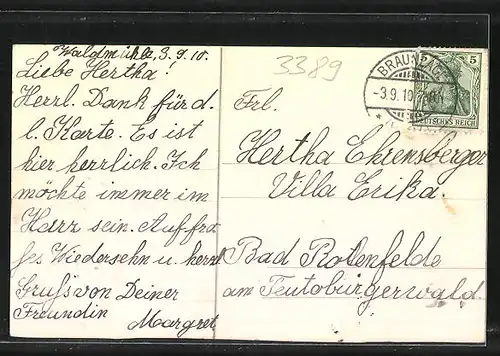 Waldmühle, 3.9.10.
Liebe Hertha!
Herzl. Dank für d.
l. Karte. Es ist
hier herrlich. Ich
möchte immer im
Harz sein. Auf fro-
hes Wiedersehn u. herzl
Gruß von Deiner
Freundin
Margret
3389
BRAUNLAGE
-3.9.10
5 5
DEUTSCHES REICH
Frl.
Hertha Ehrensberger
Villa Erika.
Bad Rotenfelde
am Teutoburgerwald.